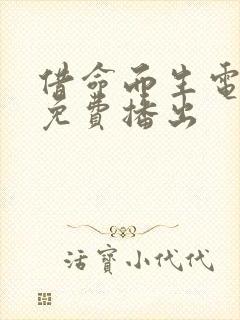 借命而生電
免費播出
活寶小代代